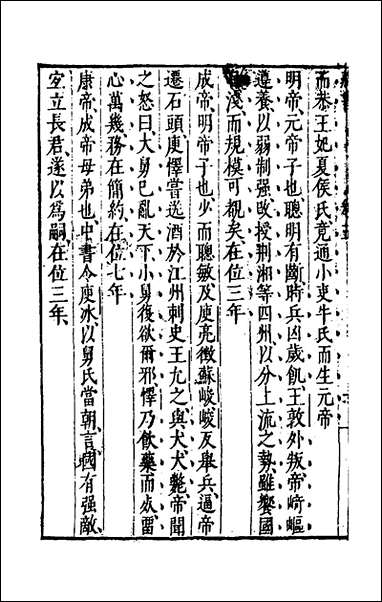 而恭王妃夏侯氏竟通小吏牛氏而生元帝
明帝元帝子也聰明有斷時兵凶歲飢王敦外叛帝﨑嶇
遵養以弱制强改授荆湘等四州以分上流之勢雖饗國
淺而規模可覩矣在位三年
成帝明帝子也少而聰敏及庾亮徵蘇峻峻反舉兵逼帝
遷石頭庾懌嘗送酒於江州刺史王允之與犬犬斃帝聞
之怒曰大舅已亂天下小舅復欲爾邪懌乃飲藥而死留
心萬幾務在簡約在位七年
康帝成帝母弟也中書令庾冰以舅氏當朝言國有强敵
宜立長君遂以爲嗣在位三年